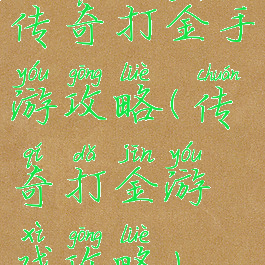 传奇打金手
yóu gōng lüè chuán
游攻略(传
qí dǎ jīn yóu
奇打金游
xì gōng lüè
戏攻略)